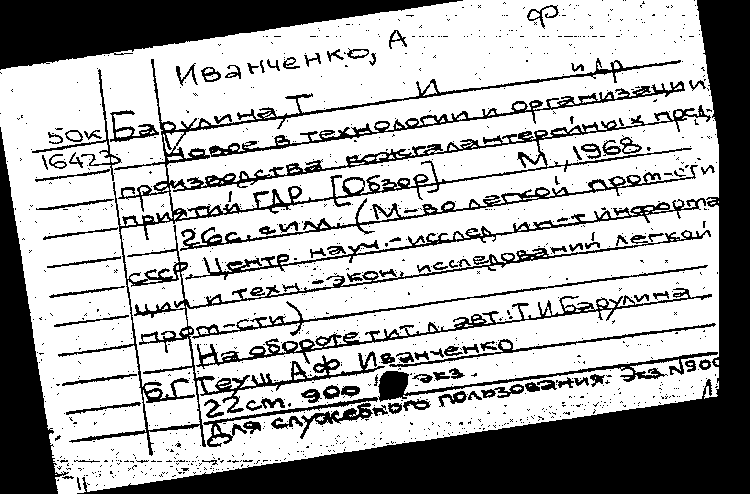 Ф
Иванченко, А
50к Барулина, Т И и др
16423 Новое в технологии и организации
производства кожгалантерейных пред-
приятий ГДР. [Обзор] М., 1968.
26с. с илл. (М-во легкой пром-сти
СССР. Центр. науч.-исслед. ин-т информа
ции и техн.-экон. исследований легкой
пром-сти)
На обороте тит. л. авт.: Т.И. Барулина
Б.Г. Теуш, А.Ф Иванченко
22см. 900 экз.
Для служебного пользования. Экз. №900